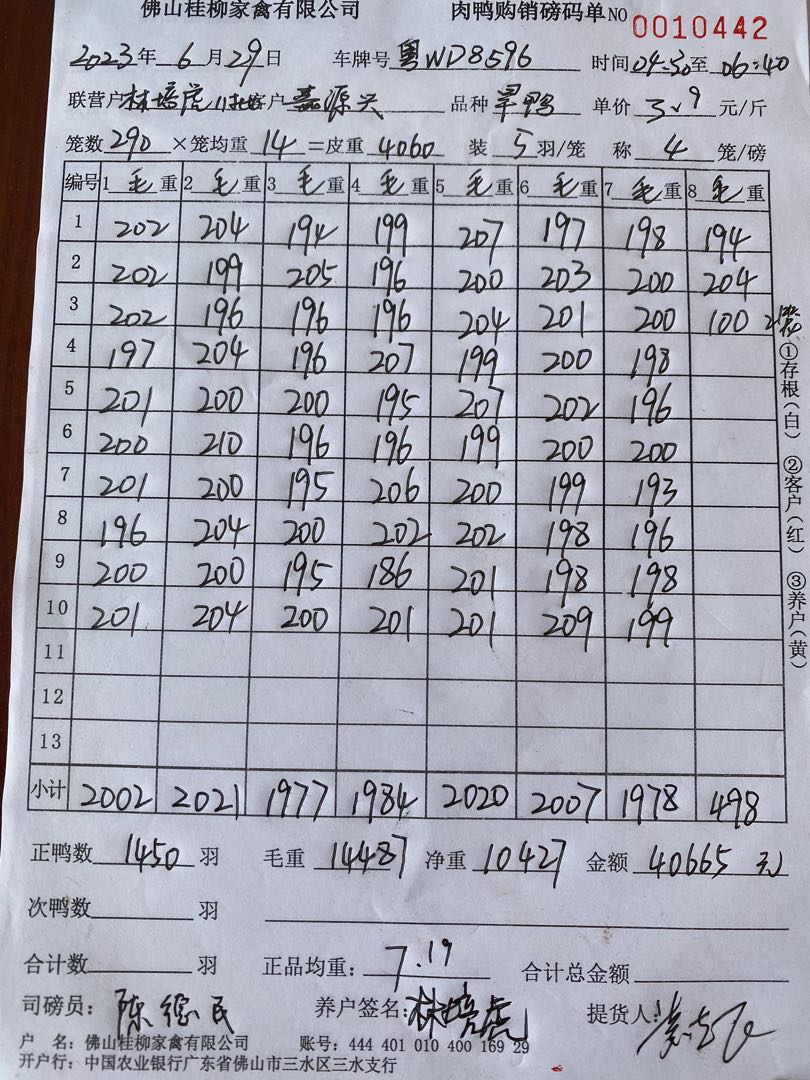 佛山桂柳家禽有限公司 肉鸭购销磅码单NO 0010442
2023年 6月29日 车牌号 粤WD8596 时间04:30至06:40
联营户林培虎 11批 客户 嘉源兴 品种 旱鸭 单价 3.9 元/斤
笼数290×笼均重14=皮重4060 装5羽/笼 称4笼/磅
编号 1毛重 2毛重 3毛重 4毛重 5毛重 6毛重 7毛重 8毛重
1 202 204 194 199 207 197 198 194
2 202 199 205 196 200 203 200 204
3 202 196 196 196 204 201 200 100 2笼
4 197 204 196 207 199 200 198
5 201 200 200 195 207 202 196
6 200 210 196 196 199 200 200
7 201 200 195 206 200 199 193
8 196 204 200 202 202 198 196
9 200 200 195 186 201 198 198
10 201 204 200 201 201 209 199
11
12
13
小计 2002 2021 1977 1984 2020 2007 1978 498
①存根(白) ②客户(红) ③养户(黄)
正鸭数 1450 羽 毛重 14487 净重 10427 金额 40665 元
次鸭数 羽
合计数 羽 正品均重: 7.19 合计总金额
司磅员: 陈德民 养户签名: 林培虎 提货人:
户 名: 佛山桂柳家禽有限公司 账号: 444 401 010 400 169 29
开户行: 中国农业银行广东省佛山市三水区三水支行